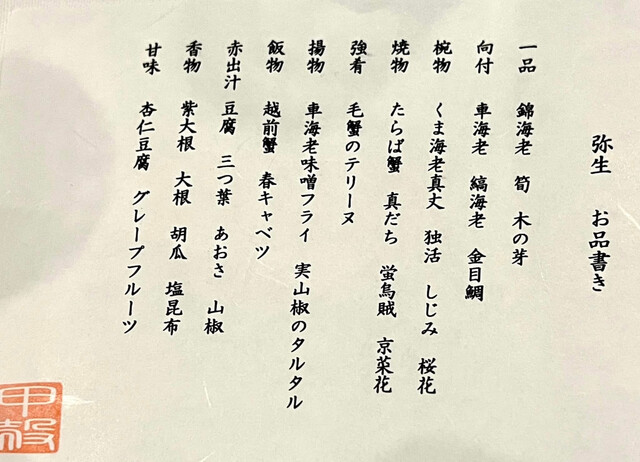 弥生 お品書き
一品 錦海老 筍 木の芽
向付 車海老 縞海老 金目鯛
椀物 くま海老真丈 独活 しじみ 桜花
焼物 たらば蟹 真だち 蛍烏賊 京菜花
強肴 毛蟹のテリーヌ
揚物 車海老味噌フライ 実山椒のタルタル
飯物 越前蟹 春キャベツ
赤出汁 豆腐 三つ葉 あおさ 山椒
香物 紫大根 大根 胡瓜 塩昆布
甘味 杏仁豆腐 グレープフルーツ
甲殻